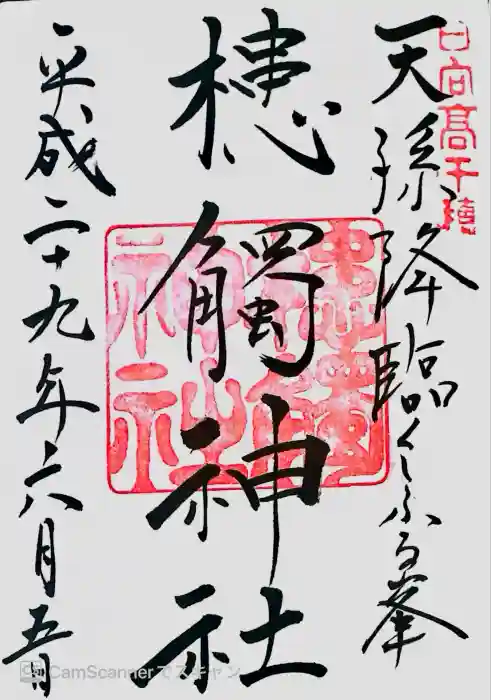 日向高千穂
天孫降臨くしふる峯
槵觸神社
平成二十九年六月五日
CamScannerでスキャン